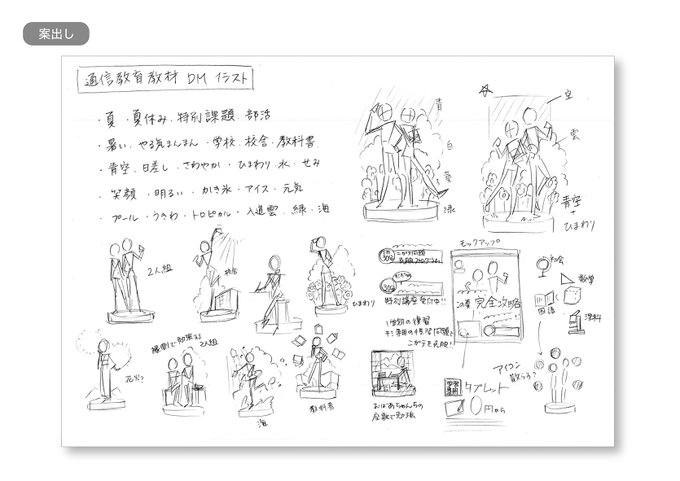 案出し
通信教育教材 DM イラスト
・夏 ・夏休み ・特別課題 ・部活
・暑い ・やる気まんまん ・学校 ・校舎 ・教科書
・青空 ・日差し ・さわやか ・ひまわり ・水 ・せみ
・笑顔 ・明るい ・かき氷 ・アイス ・元気
・プール ・うきわ ・トロピカル ・入道雲 ・緑 ・海
青
白
黄
緑
空
雲
青空
+
ひまわり
2人組
校舎
ひまわり
花火?
縁側で勉強する
2人組
海
教科書
特別講座受付中!!
1学期の復習
おばあちゃんちの
座敷で勉強
モックアップ
この夏 完全攻略
社会
数学
国語
理科
アイコン
散らす?
タブレット
0円から